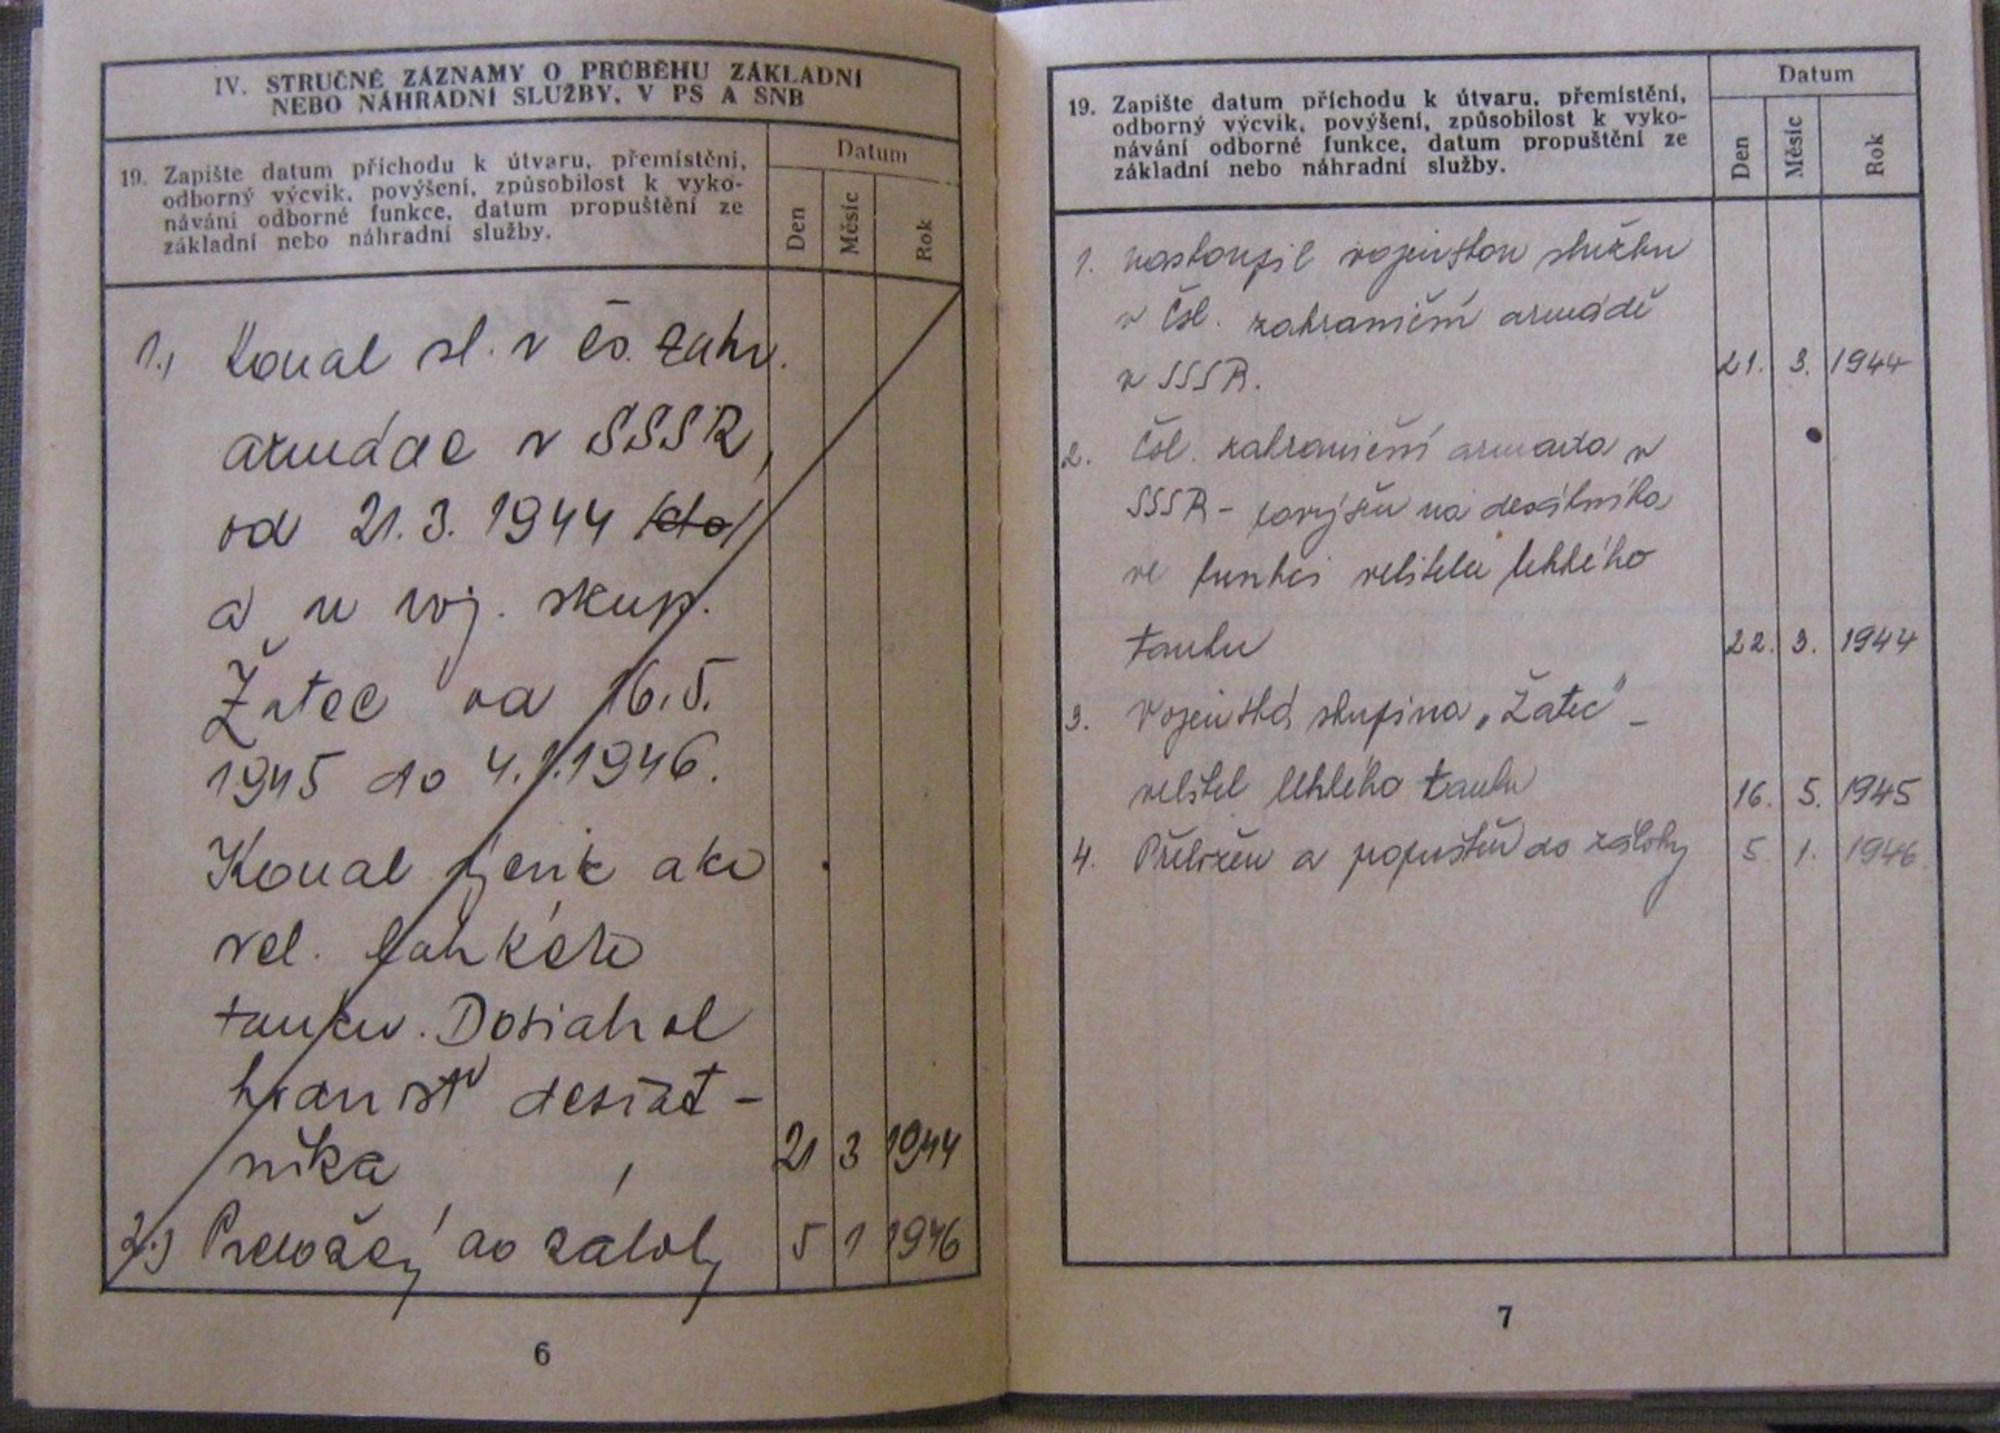 IV. STRUČNÉ ZÁZNAMY O PRŮBĚHU ZÁKLADNÍ
NEBO NÁHRADNÍ SLUŽBY, V PS A SNB
19. Zapište datum příchodu k útvaru, přemístění,
odborný výcvik, povýšení, způsobilost k vyko-
návání odborné funkce, datum propuštění ze
základní nebo náhradní služby.
Datum
Den
Měsíc
Rok
1., Konal sl. v čs. zahr.
armáde v SSSR,
od 21.3. 1944
a u voj. skup.
Žatec od 16.5.
1945 do 4.1.1946.
Konal ako
vel. ľahkého
tanku. Dosiahol
hodnosť desiat-
nika 21 3 1944
2.) Preložený do zálohy 5 1 1946
6
19. Zapište datum příchodu k útvaru, přemístění,
odborný výcvik, povýšení, způsobilost k vyko-
návání odborné funkce, datum propuštění ze
základní nebo náhradní služby.
Datum
Den
Měsíc
Rok
1. nastoupil vojenskou službu
v Čsl. zahraniční armádě
v SSSR. 21. 3. 1944
2. Čsl. zahraniční armáda v
SSSR - povýšen na desátníka
ve funkci velitele lehkého
tanku 22. 3. 1944
3. Vojenská skupina „Žatec" -
velitel lehkého tanku 16. 5. 1945
4. Přeložen a propuštěn do zálohy 5. 1. 1946.
7